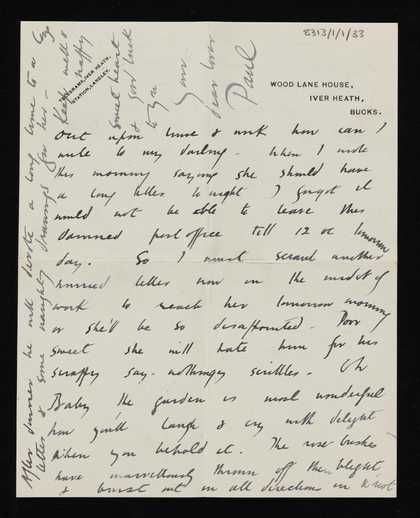 8313/1/1/33
WOOD LANE HOUSE,
IVER HEATH,
BUCKS.
TELEGRAMS, IVER HEATH.
STATION, LANGLEY.
out upon time & work how can I
write to my darling. When I wrote
this morning saying she should have
a long letter to night I forgot it
would not be able to leave this
damned post office till 12 oc tomorrow
day. So I must scrawl another
hurried letter now in the midst of
work to reach her tomorrow morning
or she'd be so disappointed. Poor
sweet she will hate him for his
scrappy say-nothingy scribbles. Oh
Baby the garden is most wonderful
how you'll laugh & cry with delight
when you behold it. The rose bushes
have marvellously thrown off their blight
& burst out in all direction in a riot
After dinner he will devote a long time to a
letter & some naughty drawings for her -
Keep well &
happy
sweet heart
& good luck
to you
Your
dear lover
Paul